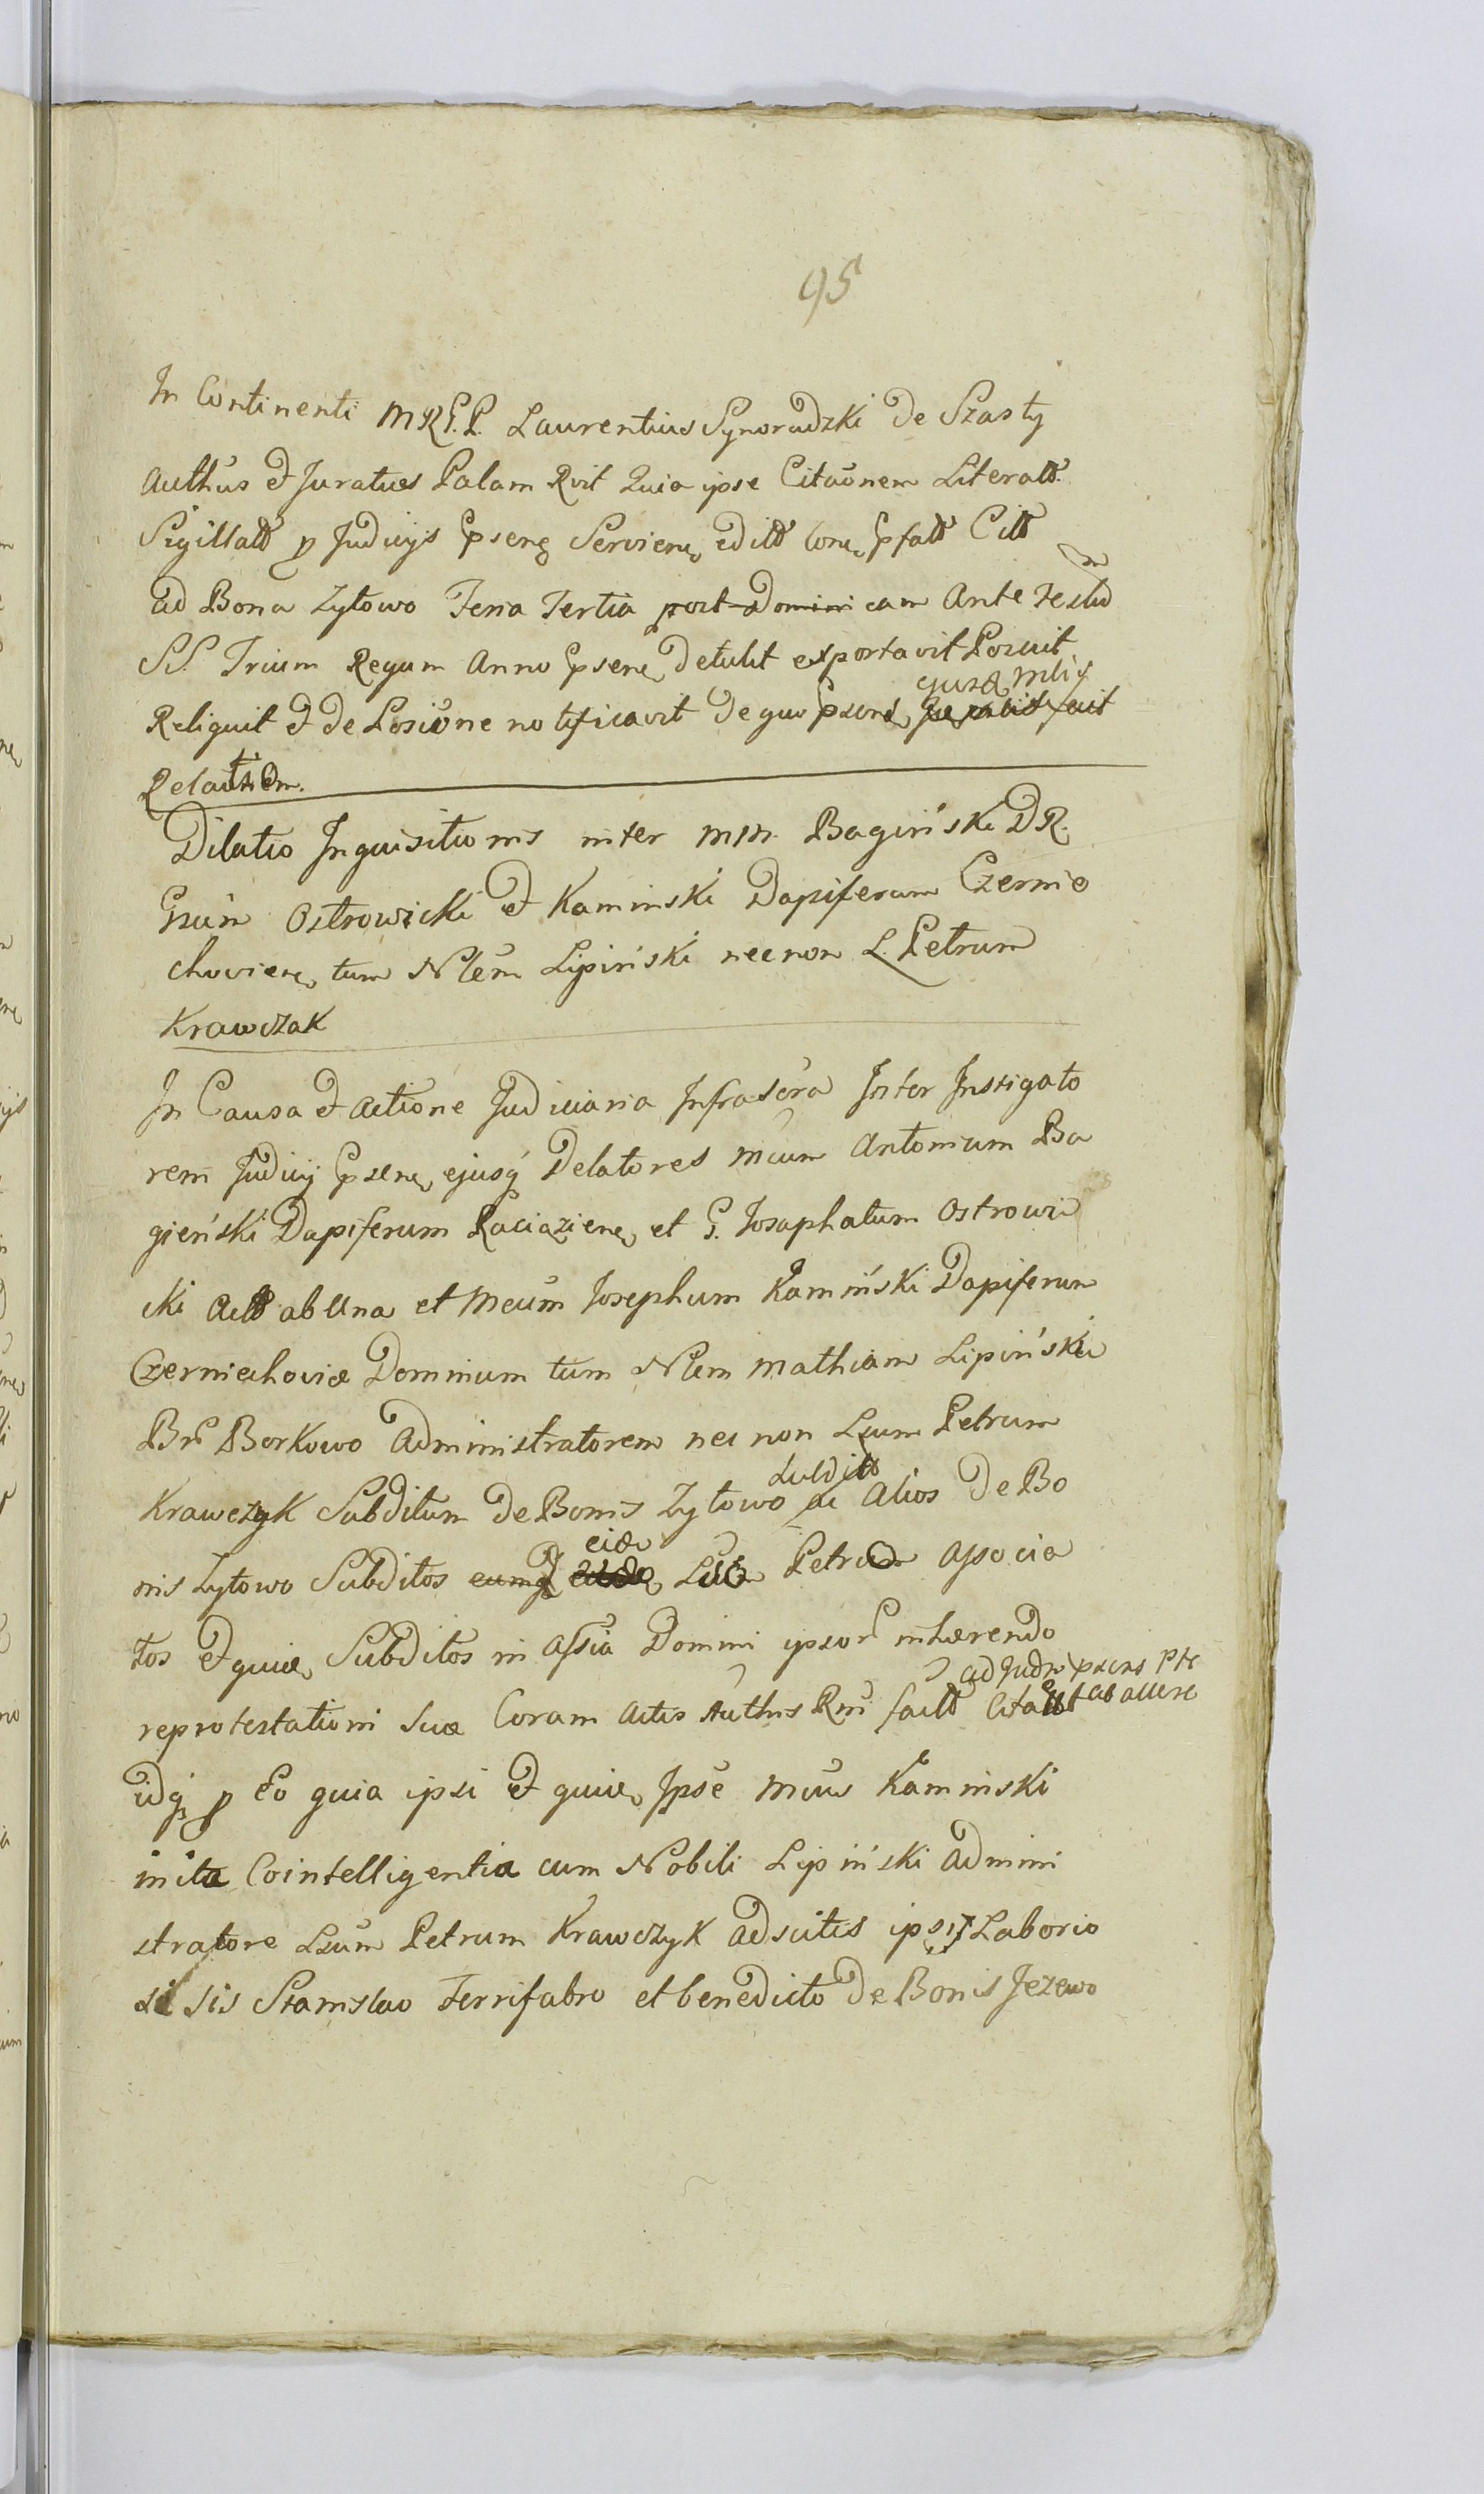 95
In Continenti MRG.P. Laurentius Synoradzki de Szasty
Authus et Juratues Palam Rvit Quia ipse Citaōnem Literatt.
Sigillatt p Judicys Psene Serviene editt Cone Pfatt Citt
ad Bona Zytowo Feria Tertia post Dominicam Ante Festū
SS. Trium Regum Anno Psene detulit exportavit Posuit
Reliquit et de Posiōne notificavit de quo Psene fuit
Relatiōem.
Dilatio Inquisitionis inter MM. Baginski DR.
Gsūm Ostrowicki et Kaminski Dapiferum Czernie
choviene tum Nlēm Lipiński necnon L. Petrum
Krawczak
In Causa et actione Judiciaria Infrascra Inter Instigato
rem Judicij Psene ejusq Delatores Mcum Antonium Ba
gieński Dapiferum Raciaziene et G. Josaphatum Ostrowi
cki Actt ab Una et Mcum Josephum Kamiński Dapiferum
Czerniechovie Dominum tum Nlem Mathiam Lipiński
Bnr Borkowo Administratorem nec non Lsum Petrum
Krawczyk Subditum de Bonis Zytowo ac Alios de Bo
nis Zytowo Subditos eumq eide Petro Associa
tos et quia Subditos in assia Domini ipsor inhærendo
ad Judm psens
reprotestationi Suæ Coram Actis Authis Rni factt Citatt
idq p Eo quia ipsi et quia Ipse Mcus Kaminski
inita Cointelligentia cum Nobili Lipiński admini
stratore Lsum Petrum Krawczyk adscitis ipsi Laborio
sis Stanislao Ferrifabro et benedicto de Bonis Jezewo